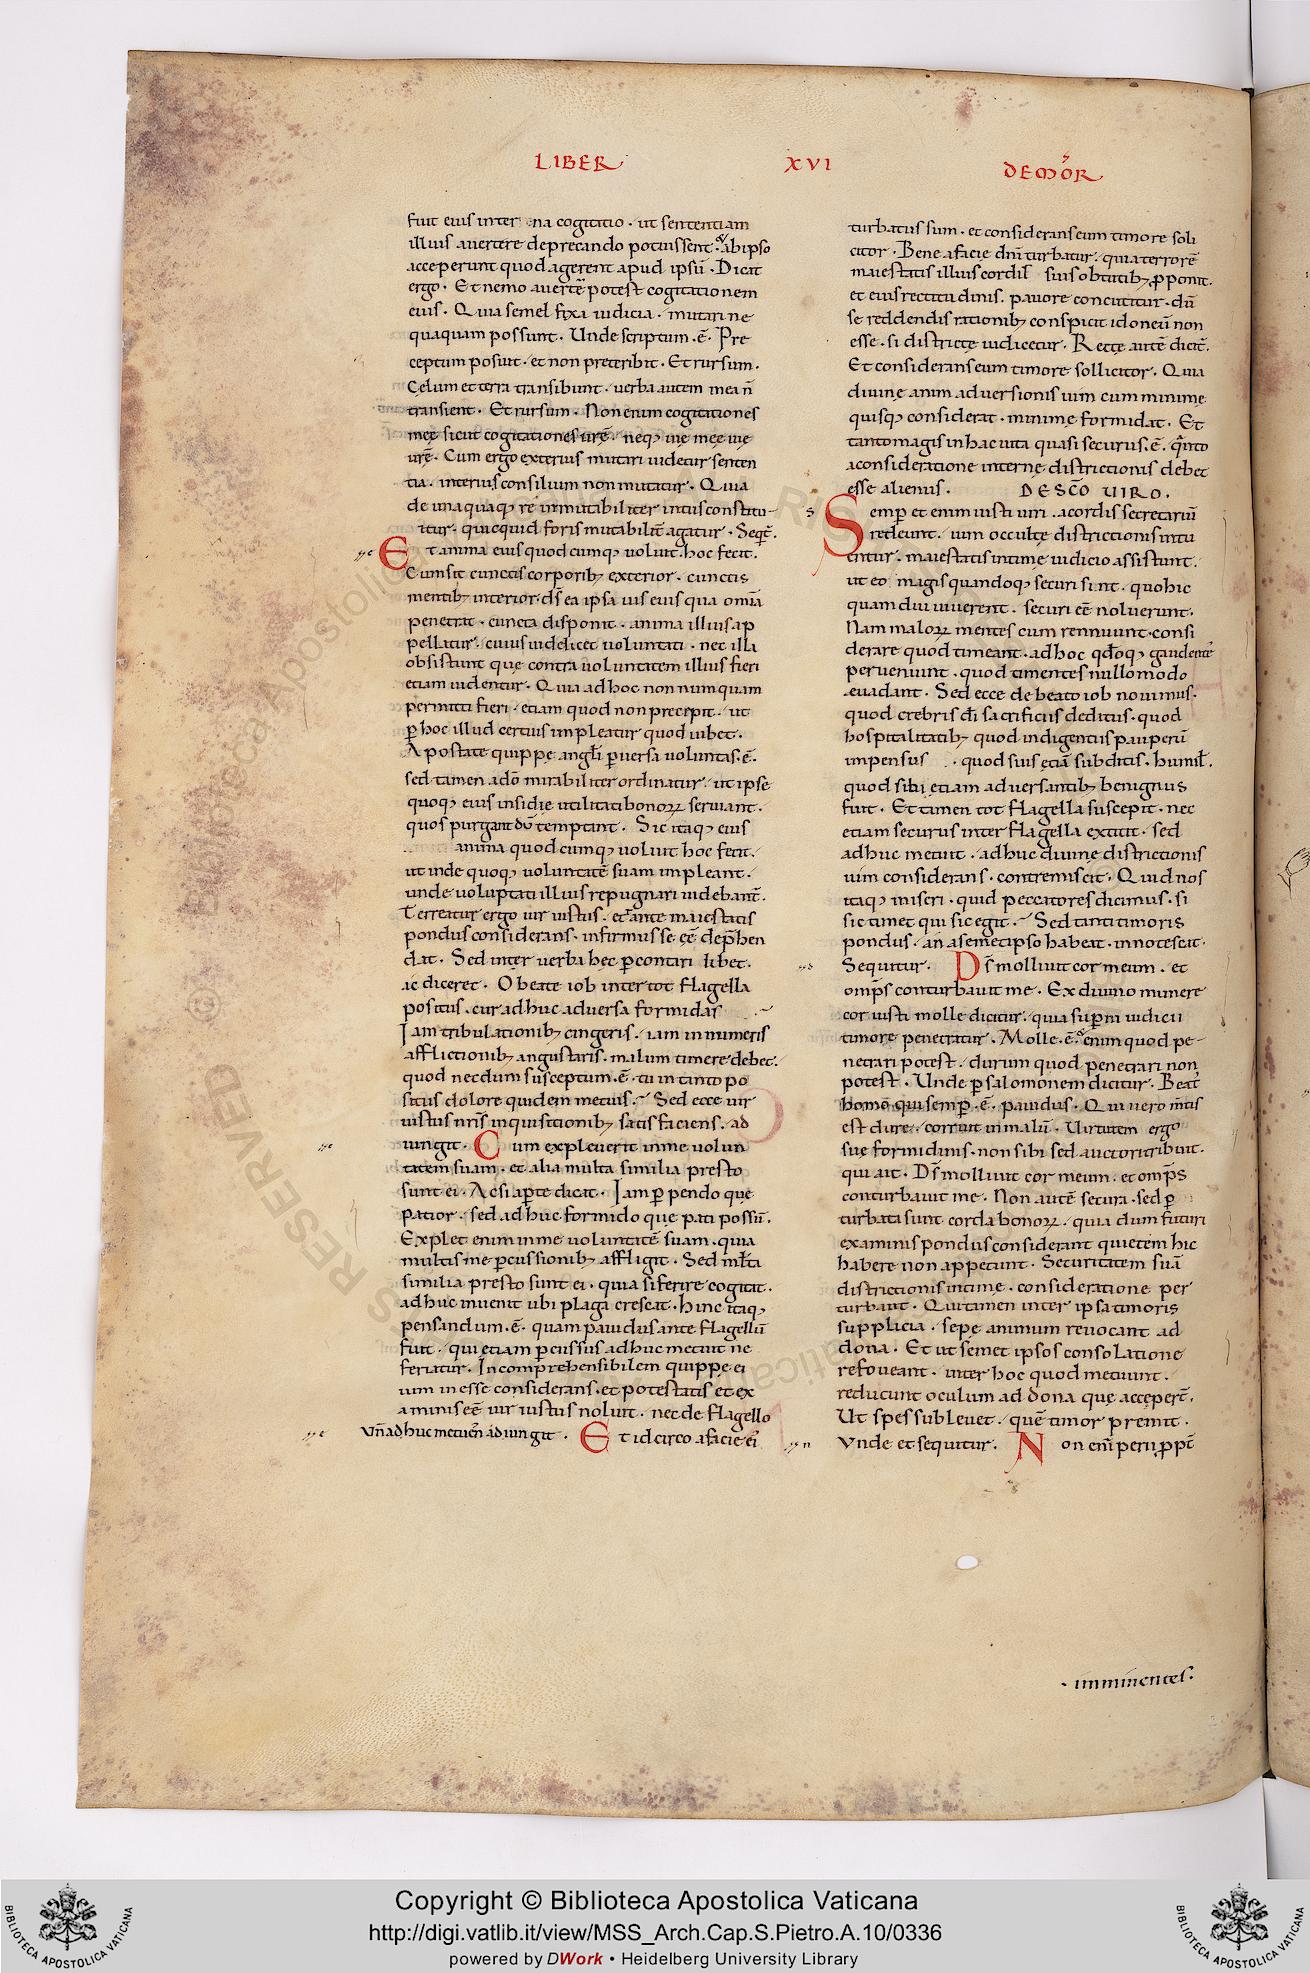 LIBER XVI DEMOR̄
fuit eius interna cogitatio · ut sententiam
illius auertere deprecando potuissent · ab ipso
acceperunt quod agerent apud ipsū · Dicat
ergo · Et nemo auertere potest cogitationem
eius · Quia semel fixa iudicia · mutari ne
quaquam possunt · Unde scriptum · ē · Pre
ceptum posuit · et non preteribit · Et rursum ·
Cęlum et terra transibunt · uerba autem mea n̄
transient · Et rursum · Non enim cogitationes
męę sicut cogitationes urę̄ · neq; uię męę uię
urę̄ · Cum ergo exterius mutari uidetur senten
tia · interius consilium non mutatur · Quia
de unaquaq; re inmutabiliter intus constitu-
itur · quicquid foris mutabilit̄ agatur · Seqt̄ ·
Et anima eius quodcumq; uoluit · hoc fecit ·
Cum sit cunctis corporib; exterior · cunctis
mentib; interior · ds̄ ea ipsa uis eius qua omīa
penetrat · cuncta disponit · anima illius ap
pellatur · cuius uidelicet uoluntati · nec illa
obsistunt quę contra uoluntatem illius fieri
etiam uidentur · Quia ad hoc non numquam
permittit fieri · etiam quod non precipit · ut
p̱ hoc illud certius impleatur quod iubet ·
Apostatę quippe angłi p̱uersa uoluntas · ē ·
sed tamen a dō mirabiliter ordinatur · ut ipse
quoq; eius insidię utilitati bonoꝝ seruiant ·
quos purgant dū temptant · Sic itaq; eius
anima quodcumq; uoluit hoc fecit ·
ut inde quoq; uoluntatē suam impleant ·
unde uoluptati illius repugnari uidebant̄ ·
Terreatur ergo uir iustus · et ante maiestatis
pondus considerans · infirmus se eē dep̄hen
dat · Sed inter uerba hęc p̱contari libet ·
ac diceret · O beate iob inter tot flagella
positus · cur adhuc aduersa formidas
Iam tribulationib; cingeris · iam innumeris
afflictionib; angustaris · malum timere debet ·
quod necdum susceptum · ē · tu in tanto po
situs dolore quidem metuis · Sed ecce uir
iustus nr̄is inquisitionib; satisfaciens · ad
iungit · Cum expleuerit in me volun
tatem suam · et alia multa similia presto
sunt ei · Ac si ap̱te dicat · Iam p̱pendo quę
patior · sed adhuc formido quę pati possū ·
Explet enim in me uoluntatē suam · quia
multis me p̱cussionib; affligit · Sed mł̄ta
similia presto sunt ei · quia si ferire cogitat ·
adhuc inuenit ubi plaga crescat · hinc itaq;
pensandum · ē · quam pauidus ante flagellū
fuit · qui etiam p̱cussus adhuc metuit ne
feriatur · Incomprehensibilem quippe ei
uim inesse considerans · et potestatis et ex
aminis eē uir iustus noluit · nec de flagello
Vn̄ adhuc metuen̄ adiungit · Et idcirco a facie ei'
turbatus sum · et considerans eum timore soli
citor · Bene a facie dn̄i turbatur · quia terrorē
maiestatis illius cordił suis obtutib; p̱ponit ·
et eius rectitudinis · pauore concutitur · dū
se reddendis rationib; conspicit idoneū non
esse · si districtę iudicetur · Rectę autē dicit̄ ·
Et considerans eum timore sollicitor · Quia
diuinę animaduersionis uim cum minimę
quisq; considerat · minimę formidat · Et
tanto magis in hac uita quasi securus · ē · q̄nto
a consideratione internę districtionis debet
esse alienus · DE SCŌ UIRO ·
Semp̱ et enim iusti uiri · a cordis secretariū
redeunt · uim occultę districtionis intu
entur · maiestatis intimę iudicio assistunt ·
ut eo magis quandoq; securi sint · quo hic
quam diu uiuerent · securi eē noluerunt ·
Nam maloꝝ mentes cum rennuunt · consi
derare quod timeant · ad hoc qd̄oq; gaudente'
perueniunt · quod timentes nullo modo
euadant · Sed ecce de beato iob nouimus ·
quod crebris dī sacrificiis deditus · quod
hospitalitatib; quod indigentiis pauperū
impensus · quod suis etiā subditis · humił ·
quod sibi etiam aduersantib; benignus
fuit · Et tamen tot flagella suscepit · nec
etiam securus inter flagella extitit · sed
adhuc metuit · adhuc diuinę districtionis
uim considerans · contremiscit · Quid nos
itaq; miseri · quid peccatores dicimus · si
sic timet qui sic egit · Sed tanti timoris
pondus · an a semetipso habeat · innotescat ·
Sequitur · Ds̄ molliuit cor meum · et
omp̄s conturbauit me · Ex diuino munere
cor iusti molle dicitur · quia sup̱ni iudicii
timore penetratur · Molle · ē · enim quod pe-
netrari potest · durum quod penetrari non
potest · Unde p̱ salomonem dicitur · Beat'
homo qui semp̱ · ē · pauidus · Qui uero m̄tis
est durę · corruit in malū · Uirtutem ergo
suę formidinis · non sibi sed auctori tribuit ·
qui ait · Ds̄ molliuit cor meum · et omp̄s
conturbauit me · Non autē secura · sed p̱
turbata sunt corda bonoꝝ · quia dum futuri
examinis pondus considerant quietem hic
habere non appetunt · Securitatem suā
districtionis intimę · consideratione per
turbant · Qui tamen inter ipsa timoris
supplicia · sępe animum reuocant ad
dona · Et ut semetipsos consolatione
refoueant · inter hoc quod metuunt ·
reducunt oculum ad dona quę acceper̄t ·
Ut spes subleuet · quē timor premit ·
Vnde et sequitur · Non enī perii p̱pt̄
· imminentes ·
Copyright © Biblioteca Apostolica Vaticana
http://digi.vatlib.it/view/MSS_Arch.Cap.S.Pietro.A.10/0336
powered by DWork • Heidelberg University Library
BIBLIOTECA APOSTOLICA VATICANA
BIBLIOTECA APOSTOLICA VATICANA